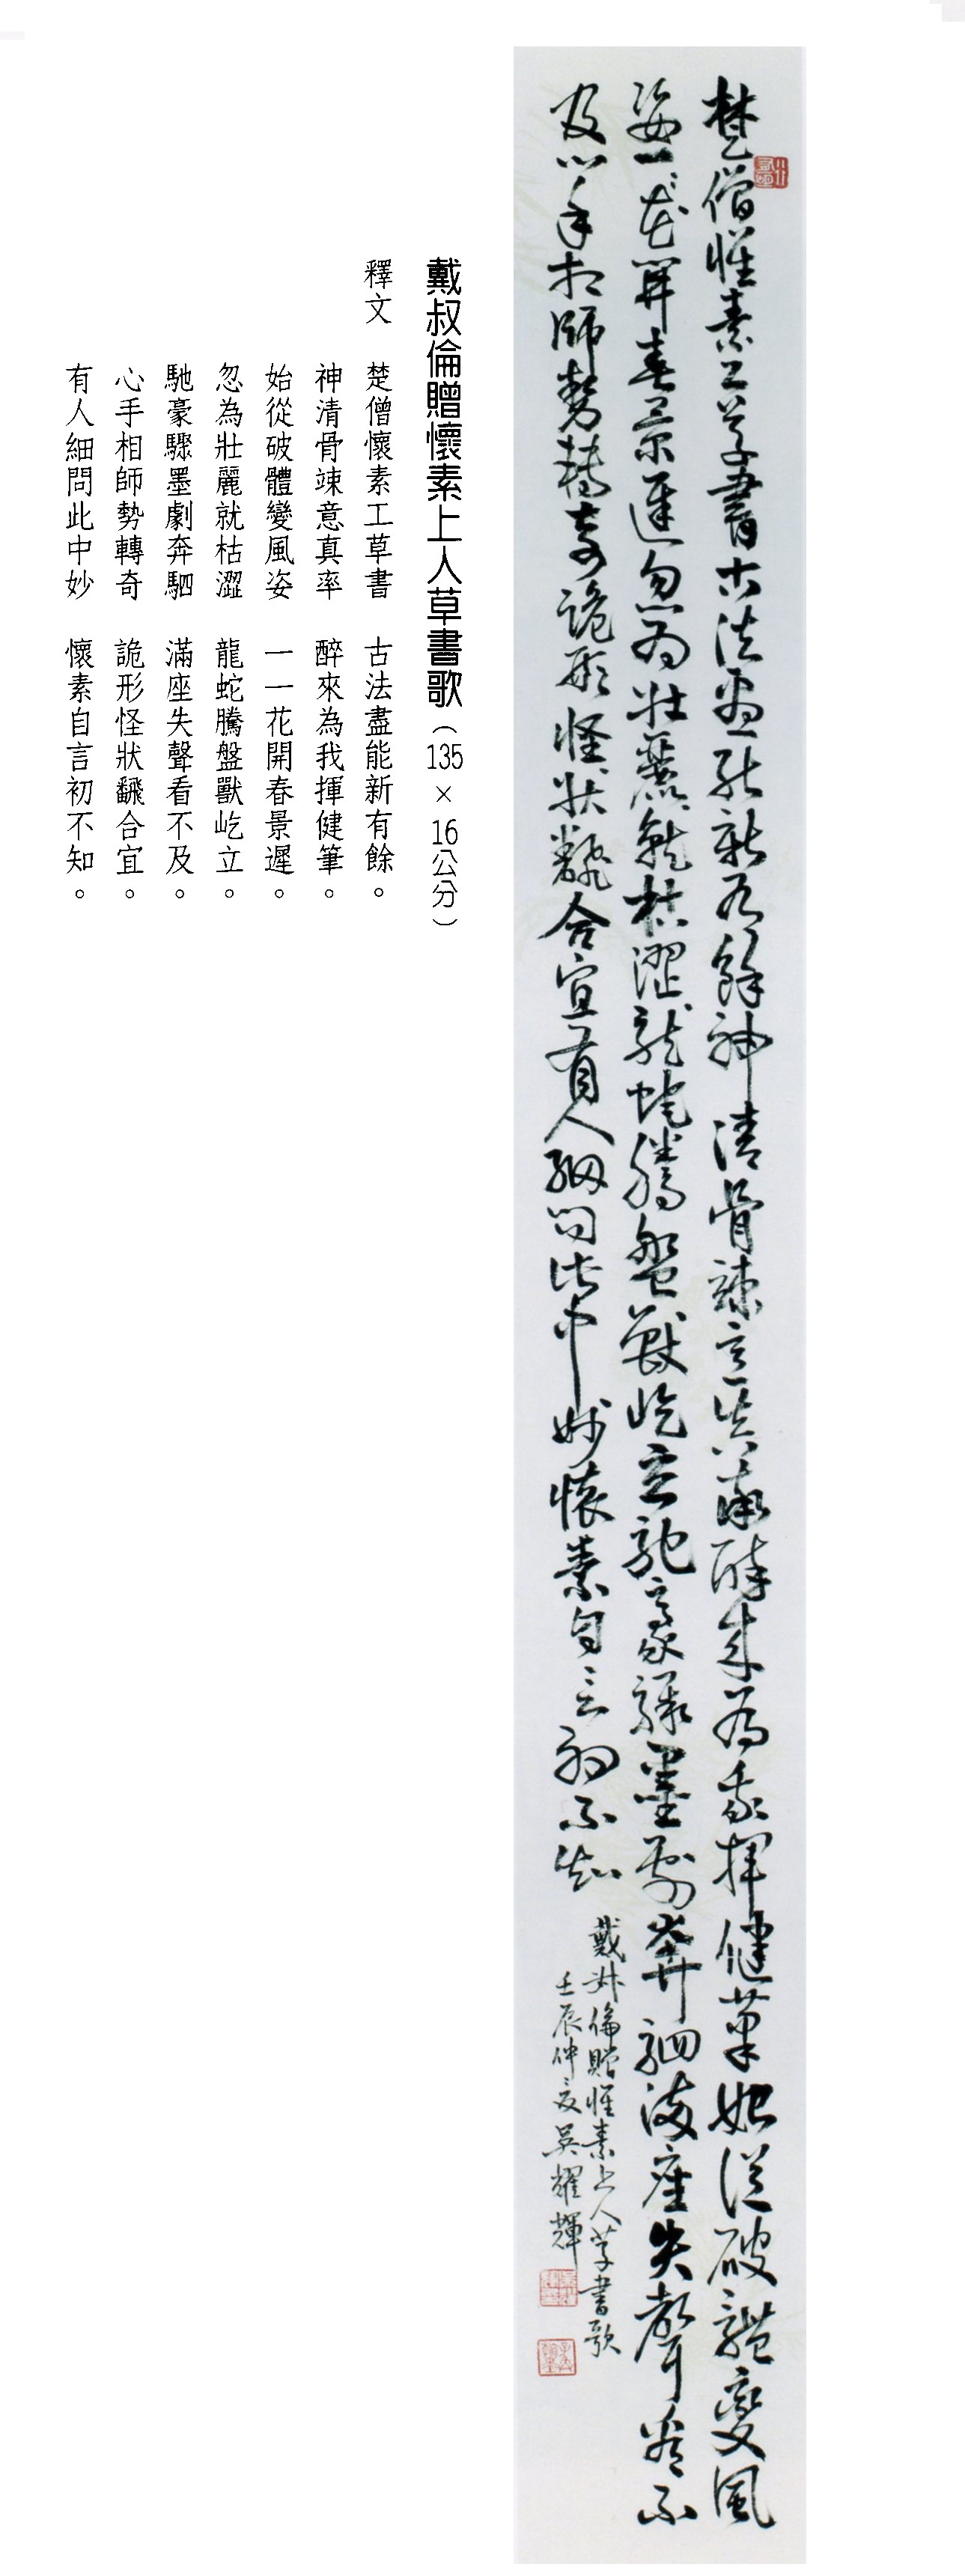 楚僧懷素工草書古法盡能新有餘神清骨竦意真率醉來為我揮健筆始從破體變風
姿一一花開春景遲忽為壯麗就枯澀龍蛇騰盤獸屹立馳豪驟墨劇奔駟滿座失聲看不
及心手相師勢轉奇詭形怪狀飜合宜有人細問此中妙懷素自言初不知
戴叔倫贈懷素上人草書歌
壬辰仲夏吳耀輝
戴叔倫贈懷素上人草書歌（135×16公分）
釋文 楚僧懷素工草書 古法盡能新有餘。
神清骨竦意真率 醉來為我揮健筆。
始從破體變風姿 一一花開春景遲。
忽為壯麗就枯澀 龍蛇騰盤獸屹立。
馳豪驟墨劇奔駟 滿座失聲看不及。
心手相師勢轉奇 詭形怪狀飜合宜。
有人細問此中妙 懷素自言初不知。